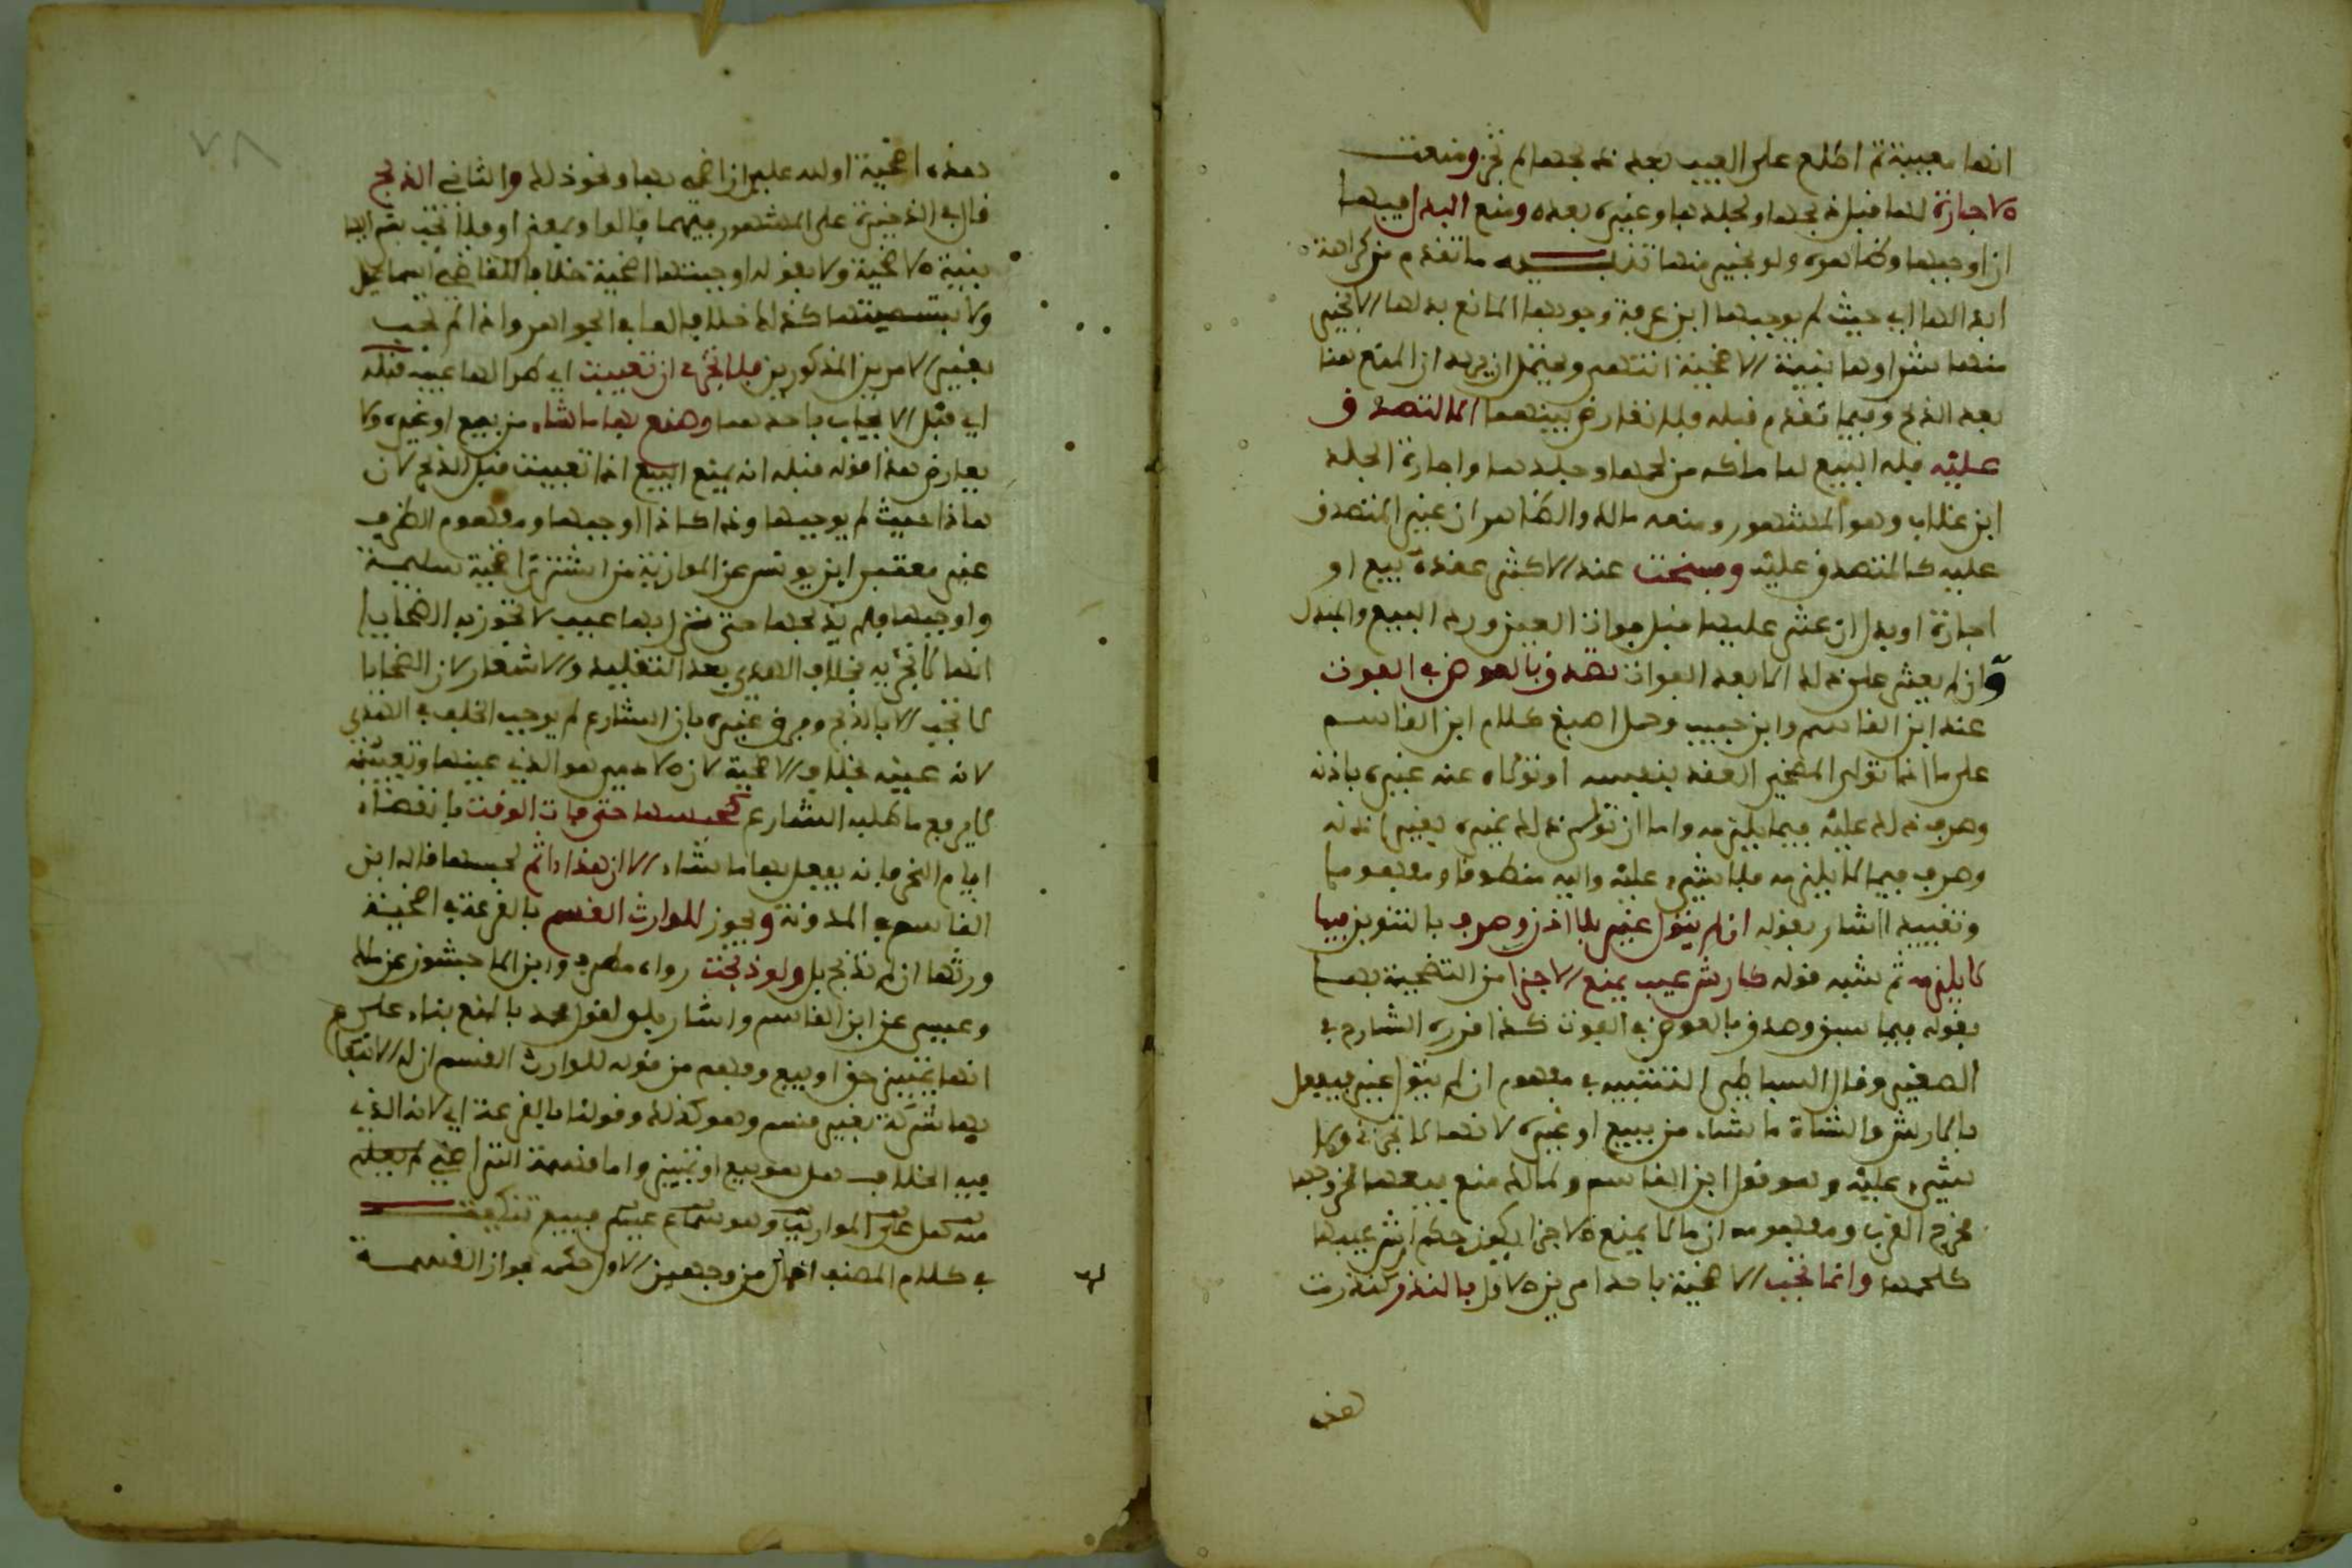 انها معيبة ثم اطلع على العيب بعد ذبحها لم تجز ومنعت
الاجارة لها قبل ذبحها ولجلدها وغيره بعده ومنع البدل فيها
ان اوجبها وظاهره ولو بخير منها تنبيه ما تقدم من كراهة
ابدالها اي حيث لم يوجبها ابن عرفة وجوبها المانع بدلها الا بخير
منها شراوها بنية الاضحية انتهى ويحتمل ان يريد ان المنع هنا
بعد الذبح وفيما تقدم قبله فلا تعارض بينهما الا المتصدق
عليه فله البيع لما ملكه من لحمها وجلدها واجارة الجلد
ابن غلاب وهو المشهور ومنعه مالك والظاهر ان غير المتصدق
عليه كالمتصدق عليه وفسخت عند الاكثر عقدة بيع او
اجارة او بدل ان عثر عليها قبل فوات العين ورد المبيع والمبدل
وان لم يعثر على ذلك الا بعد الفوات تصدق بالعوض في الفوت
عند ابن القاسم وابن حبيب وحمل اصبغ كلام ابن القاسم
على ما اذا تولى المضحي العقد بنفسه او تولاه عنه غيره باذنه
وصرف ذلك عليه فيما يلزمه واما ان تولى ذلك غيره بغير اذنه
وصرف فيما لا يلزمه فلا شيء عليه واليه منطوقا ومفهوما
وتقييد اشار بقوله ان لم يتول غير بلا اذن وصرف بالتنوين فيما
لا يلزمه ثم شبه قوله كارش عيب يمنع الاجزا من التضحية بها
بقوله فيما سبق وصدق بالعوض في الفوت كذا قرره الشارح في
الصغير وقال البساطي التشبيه في مفهوم ان لم يتول غير فيفعل
بالارش والشاة ما شاء من بيع او غيره لانها لا تجزئ ولا
شيء عليه وهو قول ابن القاسم ولمالك منع بيعها لخروجها
مخرج القرب ومفهومه ان ما لا يمنع الاجزا يكون حكم ارش عيبها
كلحمها وانما تجب الاضحية باحد امرين الاول بالنذر كنذرت
هذه
هذه اضحية او لله علي ان اضحي بها ونحو ذلك والثاني الذبح
قال في الذخيرة على المشهور فيهما فالواو بمعنى او فلا تجب بشرايها
بنية الاضحية ولا بقوله اوجبتها اضحية خلافا للقاضي اسماعيل
ولا بتسميتها كذلك خلافا لما في الجواهر واذا لم تجب
بغير الامرين المذكورين فلا تجزئ ان تعيبت اي طرا لها عيب قبله
اي قبل الايجاب باحدهما وصنع بها ما شاء من بيع او غيره ولا
يعارض هذا قوله قبله انه يمنع البيع اذا تعيبت قبل الذبح لان
هاذا حيث لم يوجبها وذاك اذا اوجبها ومفهوم الظرف
غير معتبر ابن يونس عن الموازية من اشترى اضحية سليمة
واوجبها فلم يذبحها حتى نزل بها عيب لا تجوز به الضحايا
انها لا تجزيه بخلاف الهدي بعد التقليد والاشعار لان الضحايا
لا تجب الا بالذبح وفرق غيره بان الشارع لم يوجب الخلف في الهدي
لانه عينه بخلاف الاضحية لان الادمي هو الذي عينها وتعيينه
لا يرفع ما طلبه الشارع كحبسها حتى فات الوقت بانقضاء
ايام النحر فانه يفعل بها ما شاء الا ان هذا اثم لحبسها قاله ابن
القاسم في المدونة ويجوز للوارث القسم بالقرعة في اضحية
ورثها ان لم تذبح بل ولو ذبحت رواه مطرف وابن الماجشون عن ملك
وعيسى عن ابن القاسم واشار بلو لقول محمد بالمنع بناء على
انها تمييز حق او بيع وفهم من قوله للوارث القسم ان له الانتفاع
بها شركة بغير قسم وهو كذلك وقولنا بالقرعة اي لانه الذي
فيه الخلاف هل هو بيع او تمييز واما قسمة التراضي لم يعلم
منه كعلى المواريث وهو سماع عيسى فبيع تنكيت
في كلام المصنف اجمال من وجهين الاول حكمه بجواز القسمة